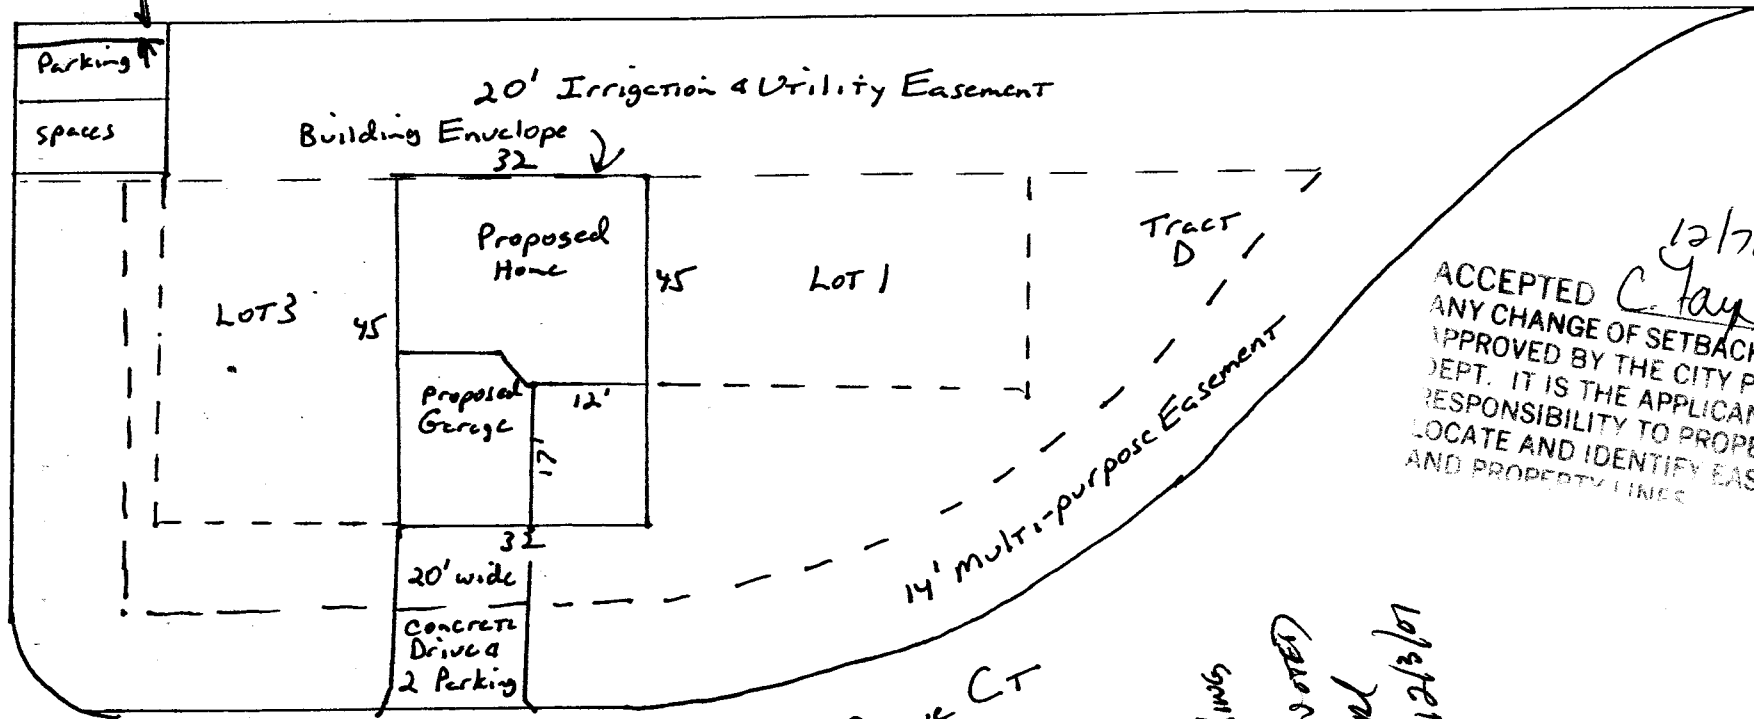 Parking
spaces
20' Irrigation & Utility Easement
Building Envelope
32
Proposed
Home
45
45
LOT 3
LOT 1
Tract
D
Proposed
Garage
12'
17'
32
20' wide
Concrete
Drive &
2 Parking
14' Multi-purpose Easement
CT
12/7
ACCEPTED C. Tay
ANY CHANGE OF SETBACK
APPROVED BY THE CITY P
DEPT. IT IS THE APPLICAN
RESPONSIBILITY TO PROPE
LOCATE AND IDENTIFY EAS
AND PROPERTY LINES
12/3/01